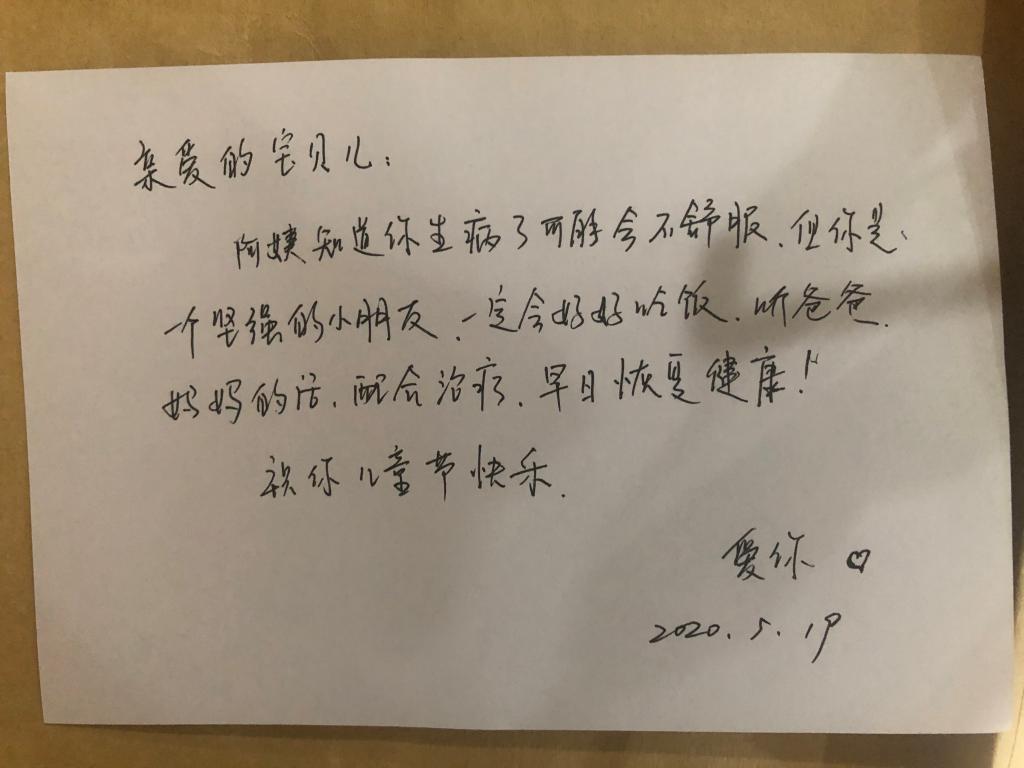 亲爱的宝贝儿：
阿姨知道你生病了可能会不舒服、但你是
一个坚强的小朋友、一定会好好吃饭、听爸爸、
妈妈的话、配合治疗、早日恢复健康！
祝你儿童节快乐.
爱你 ♡
2020.5.19